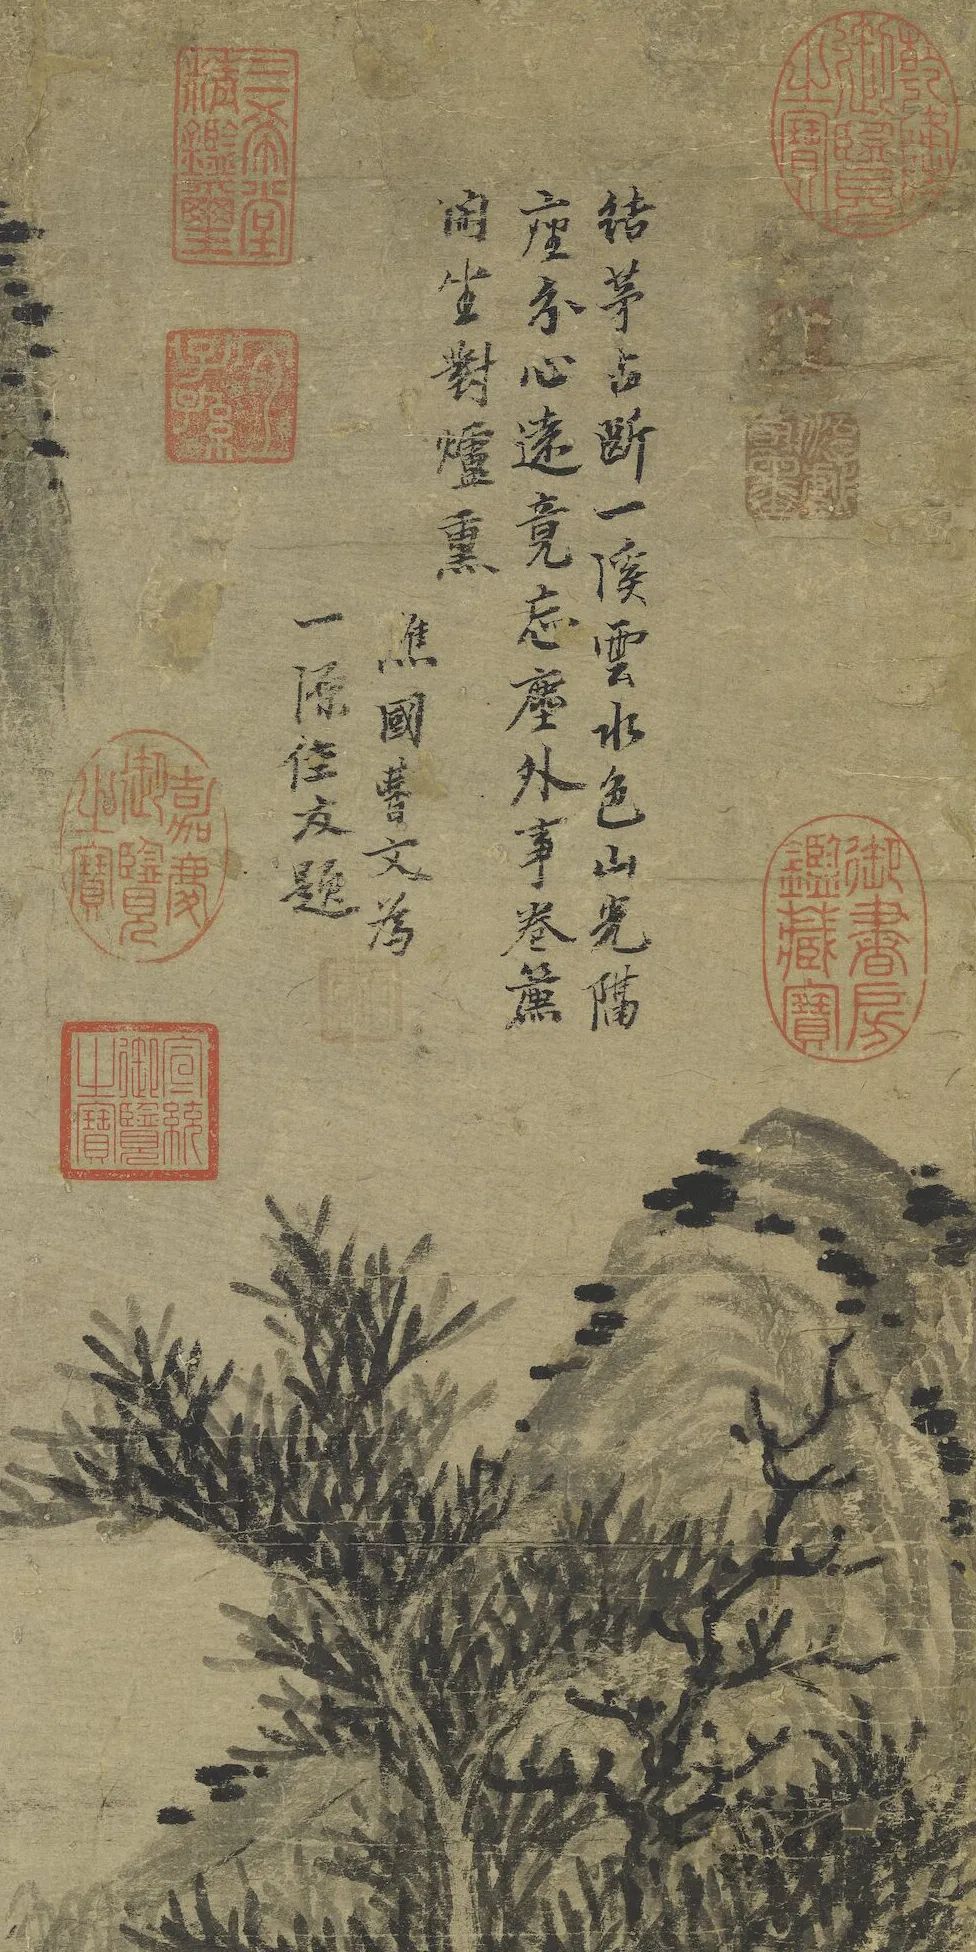 乾隆
御覽
之寶
結茅占斷一溪雲水色山光隔
座分心遠竟忘塵外事卷簾
閒坐對爐熏
譙國曹文為
一源友題
三希堂
精鑑璽
宜
子孫
御書房
鑑藏寶
嘉慶
御覽
之寶
宣統
御覽
之寶